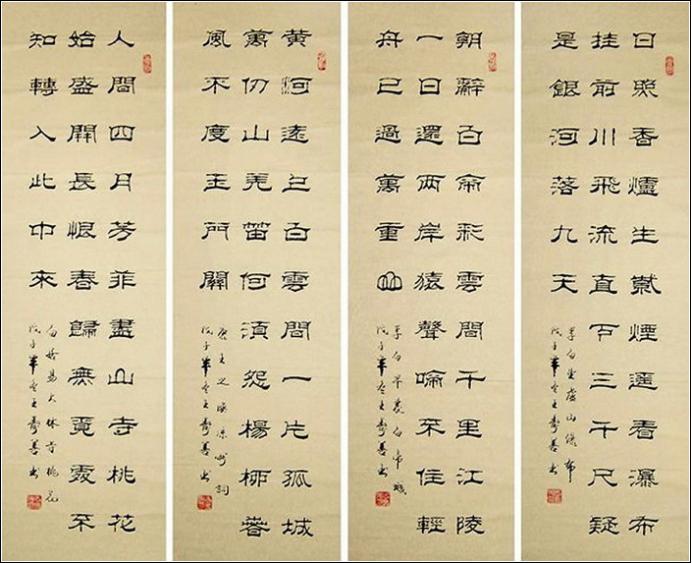 日照香爐生紫煙遥看瀑布
挂前川飛流直下三千尺疑
是銀河落九天
李白望廬山瀑布
戊子年冬王壽善書
朝辭白帝彩雲間千里江陵
一日還兩岸猿聲啼不住輕
舟已過萬重山
李白早發白帝城
戊子年冬王壽善書
黃河遠上白雲間一片孤城
萬仞山羌笛何須怨楊柳春
風不度玉門關
唐王之渙凉州詞
戊子年冬王壽善書
人間四月芳菲盡山寺桃花
始盛開長恨春歸無覓處不
知轉入此中來
白居易大林寺桃花
戊子年冬王壽善書